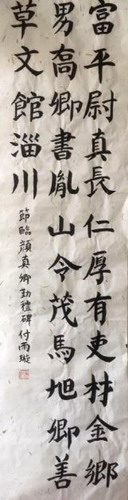 富平尉真長仁厚有吏材金鄉
男卨卿書胤山令茂馬旭卿善
草文館淄川
節臨顏真卿勤禮碑付雨璇